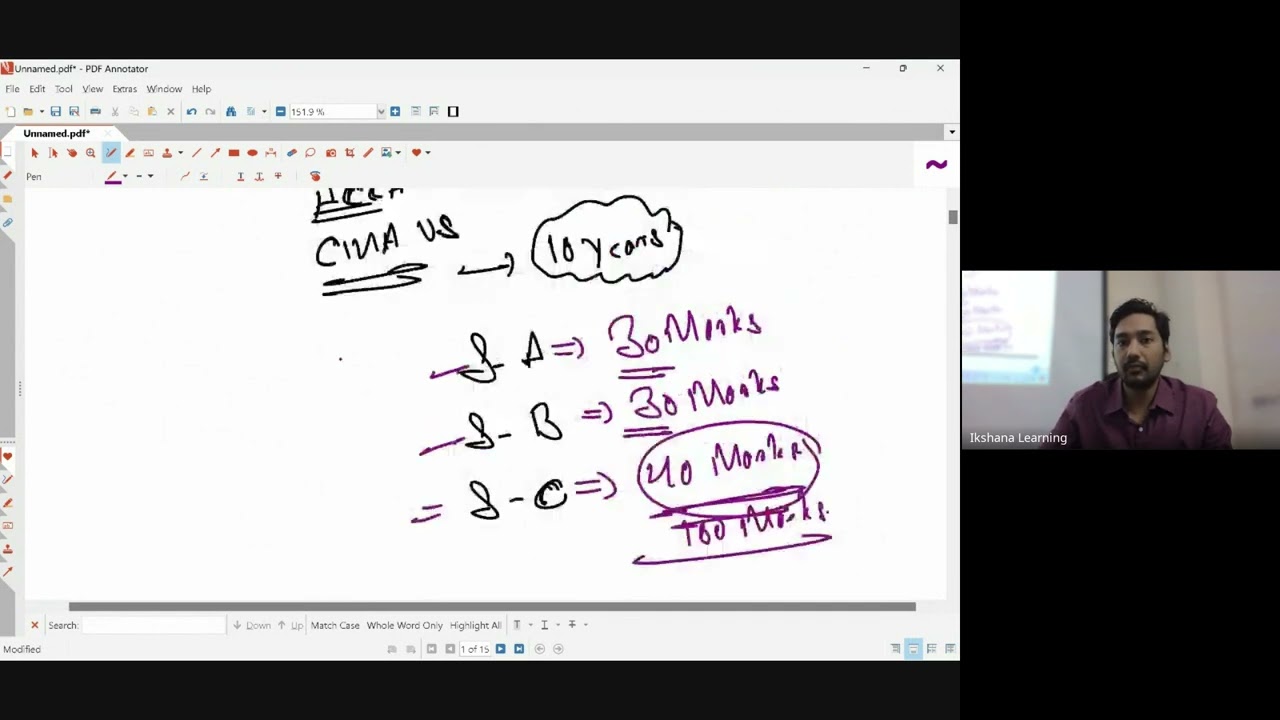 Unnamed.pdf* - PDF Annotator
File Edit Tool View Extras Window Help
151.9 %
Unnamed.pdf*
Pen
CMA US → 10 Years
S- A => 30 Marks
S- B => 30 Marks
S- C => 40 Marks
100 Marks.
Search: Down Up Match Case Whole Word Only Highlight All
Modified 1 of 15
Ikshana Learning